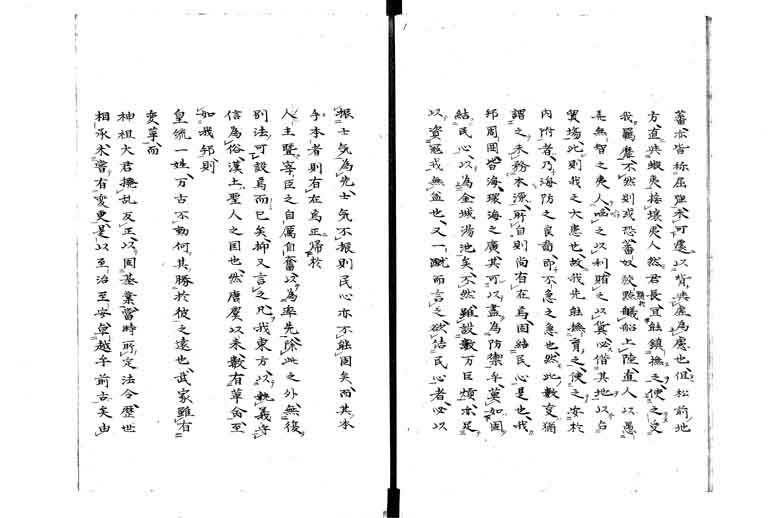 藩亦皆称屈強、未可遽以背典虚為慮也、但松前地
方、直与蝦夷接壌、夷人然君長、宜能鎮撫之、使之受
我羈縻、不然則或恐蕃奴狡黠艤船上陸、直人以愚
弄無智之夷人、啗之以利賄之以貨、必借其地以為
巣場、此則我之大患也、故我先能撫育之、使之安於
内附者、乃海防之良図、即不急之急也、然此数変猶
謂之末務、本源所自則尚有在焉、固結民心是也、我
邦周囲皆海、環海之広、其可以尽為防禦乎、莫如固
結民心、以為金城湯池矣、不然雖設数万巨熕、亦足
以資寇戎無益也、又一説而言之、欲結民心者、必以
振士気為先、士気不振則民心亦不能固矣、而其本
乎本者則有在焉、正帰於
人主曁宰臣之自厲自奮、以為率先、除此之外無復
別法可設焉而已矣、抑又言之、凡我東方、以執義守
信為俗、漢土、聖人之国也、然唐虞以来、数有革命、至
如我邦則
皇統一姓、万古不動、何其勝於彼之遠也、武家雖有
変革、而
神祖大君撥乱反正、以固基業、当時所定法令、歴世
相承、未嘗有変更、是以至治至安、卓越乎前古矣、由